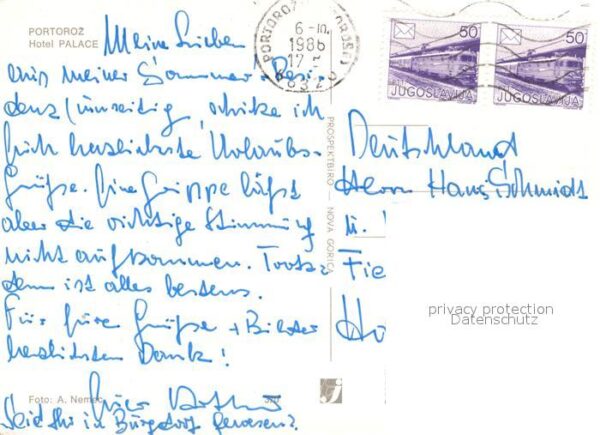 PORTOROŽ
Hotel PALACE
Meine Lieben
aus meiner Sommer-Resi-
denz (umseitig, schicke ich
Euch herzlichste Urlaubs-
Grüße. Eine Grippe läßt
aber die richtige Stimmung
nicht aufkommen. Trotz-
dem ist alles bestens.
Für Eure Grüße + Bilder
herzlichsten Dank!
Euer
Foto: A. Nemec
Seid Ihr in Burgdorf gewesen?
PROSPEKTBIRO - NOVA GORICA
PORTOROŽ
1986
17
50
JUGOSLAVIJA
50
JUGOSLAVIJA
Deutschland
Herrn Hans Schmidt
u.
Fie
privacy protection
Datenschutz